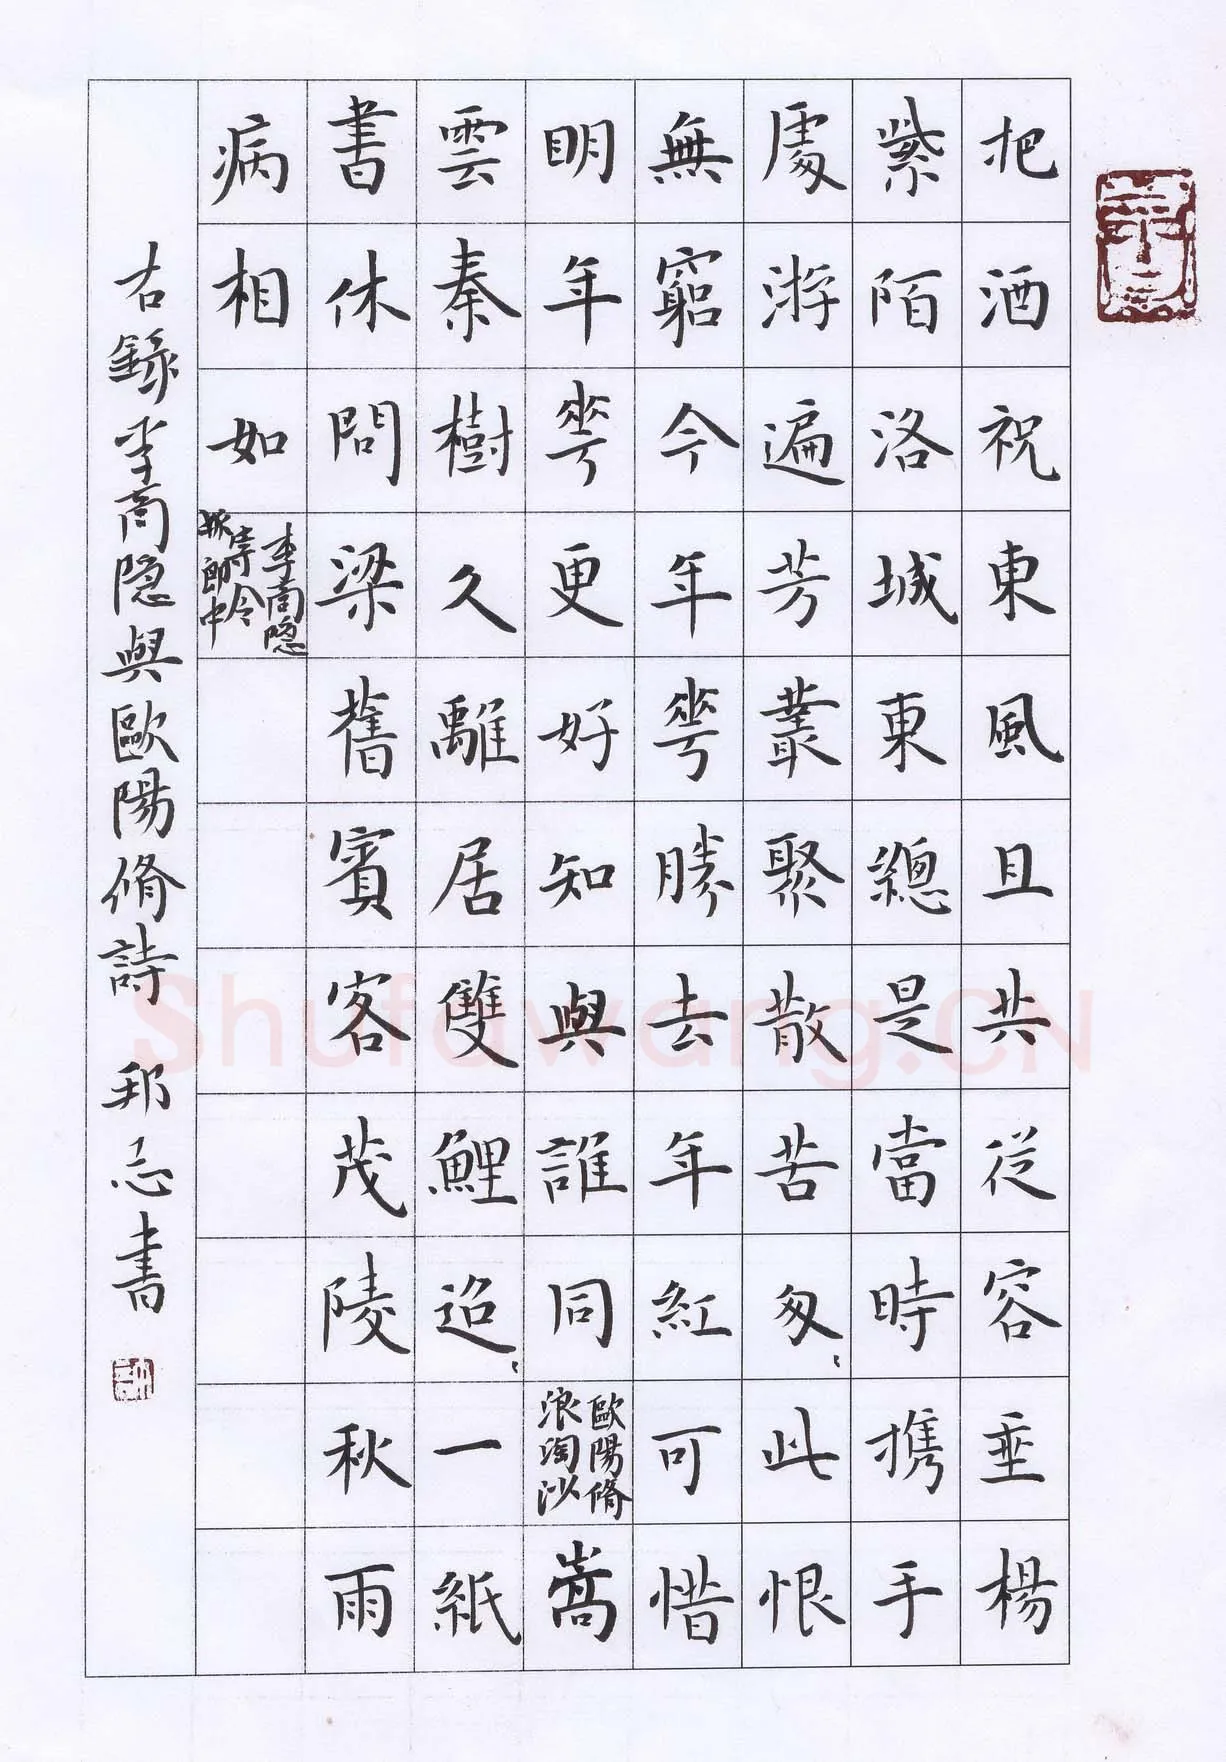 把酒祝東風且共從容垂楊
紫陌洛城東總是當時攜手
處游遍芳叢聚散苦匆〻此恨
無窮今年華勝去年紅可惜
明年華更好知與誰同
歐陽脩
浪淘沙
嵩
雲秦樹久離居雙鯉迢〻一紙
書休問梁舊賓客茂陵秋雨
病相如
李商隐
寄令
狐郎中
右録李商隐與歐陽脩詩 邦志書
Shufawang.CN